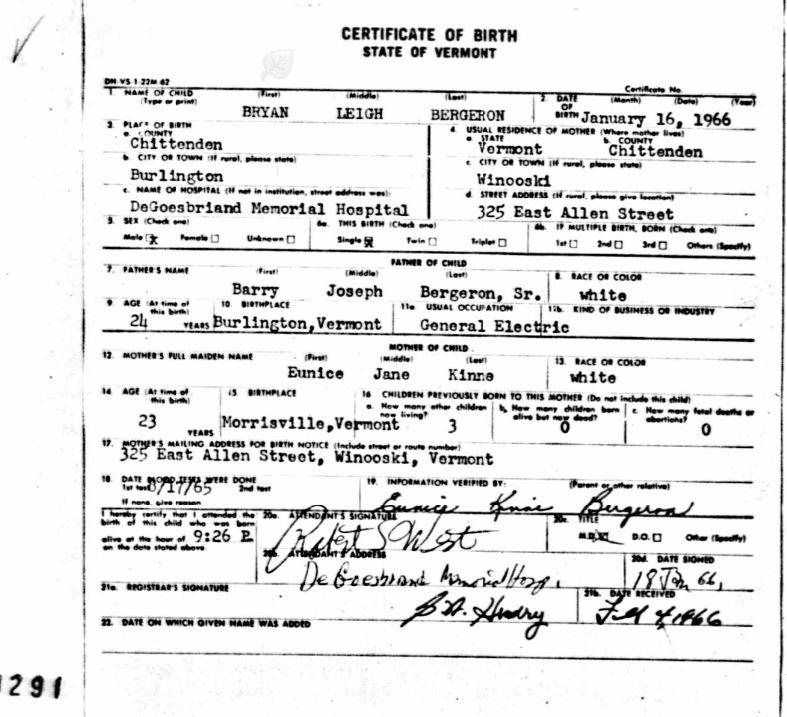 CERTIFICATE OF BIRTH
STATE OF VERMONT
DH-VS-1-22M-62
Certificate No.
1. NAME OF CHILD (First) (Middle) (Last) 2. DATE (Month) (Date) (Year)
(Type or print) OF
BRYAN LEIGH BERGERON BIRTH January 16, 1966
3. PLACE OF BIRTH 4. USUAL RESIDENCE OF MOTHER (Where mother lives)
a. COUNTY a. STATE b. COUNTY
Chittenden Vermont Chittenden
b. CITY OR TOWN (If rural, please state) c. CITY OR TOWN (If rural, please state)
Burlington Winooski
c. NAME OF HOSPITAL (If not in institution, street address was): d. STREET ADDRESS (If rural, please give location)
DeGoesbriand Memorial Hospital 325 East Allen Street
5. SEX (Check one) 6a. THIS BIRTH (Check one) 6b. IF MULTIPLE BIRTH, BORN (Check one)
Male x Female Unknown Single x Twin Triplet 1st 2nd 3rd Others (Specify)
FATHER OF CHILD
7. FATHER'S NAME (First) (Middle) (Last) 8. RACE OR COLOR
Barry Joseph Bergeron, Sr. white
9. AGE (At time of this birth) 10. BIRTHPLACE 11a. USUAL OCCUPATION 11b. KIND OF BUSINESS OR INDUSTRY
24 YEARS Burlington,Vermont General Electric
MOTHER OF CHILD
12. MOTHER'S FULL MAIDEN NAME (First) (Middle) (Last) 13. RACE OR COLOR
Eunice Jane Kinne white
14. AGE (At time of this birth) 15. BIRTHPLACE 16 CHILDREN PREVIOUSLY BORN TO THIS MOTHER (Do not include this child)
a. How many other children now living? b. How many children born alive but now dead? c. How many fetal deaths or abortions?
23 YEARS Morrisville,Vermont 3 0 0
17. MOTHER'S MAILING ADDRESS FOR BIRTH NOTICE (Include street or route number)
325 East Allen Street, Winooski, Vermont
18. DATE BLOOD TESTS WERE DONE 19. INFORMATION VERIFIED BY: (Parent or other relative)
1st test /17/65 2nd test
If none, give reason Eunice Bergeron
I hereby certify that I attended the 20a. ATTENDANT'S SIGNATURE 20c. TITLE
birth of this child who was born
alive at the hour of 9:26 P. Robert S West M.D. x D.O. Other (Specify)
on the date stated above. 20b. ATTENDANT'S ADDRESS 20d. DATE SIGNED
DeGoesbriand Memorial Hosp. 18 Jan 66,
21a. REGISTRAR'S SIGNATURE 21b. DATE RECEIVED
Feb 4, 1966
22. DATE ON WHICH GIVEN NAME WAS ADDED
1291